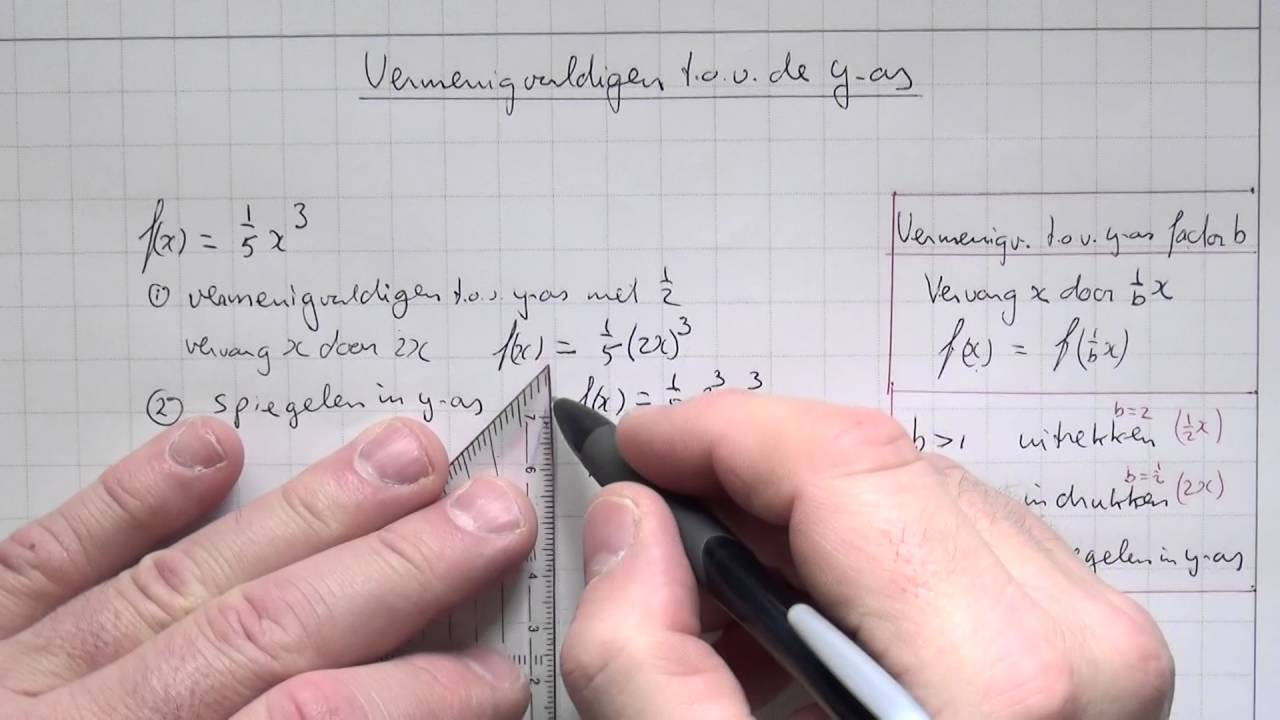 Vermenigvuldigen t.o.v. de y-as
f(x) = 1/5 x³
① vermenigvuldigen t.o.v. y-as met 1/2
vervang x door 2x f(x) = 1/5 (2x)³
② spiegelen in y-as f(x) = 1/ ³ ³
Vermenigv. t.o.v. y-as factor b
Vervang x door 1/b x
f(x) = f(1/b x)
b=2
b > 1 uitrekken (1/2 x)
b=1/2
indrukken (2x)
gelen in y-as
7
6
4
3
2